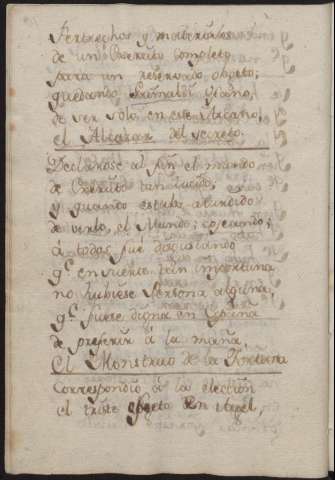 Pertrechos y materiales
de un Exercito completo
para un reservado objeto;
quedando Grimaldi ufano,
de ser solo en este Arcano,
el Alcazar del Secreto.
Declarose al fin el mando
de Exercito tan lucido,
y quando estaba aturdido
de verlo, el Mundo;
á todos fué
qe. en suerte tan importuna
no hubiese Persona alguna,
qe. fuese digna en España
de preferir á la maña,
el Monstruo de la Fortuna
Correspondió á la eleccion
el triste objeto en Argel,